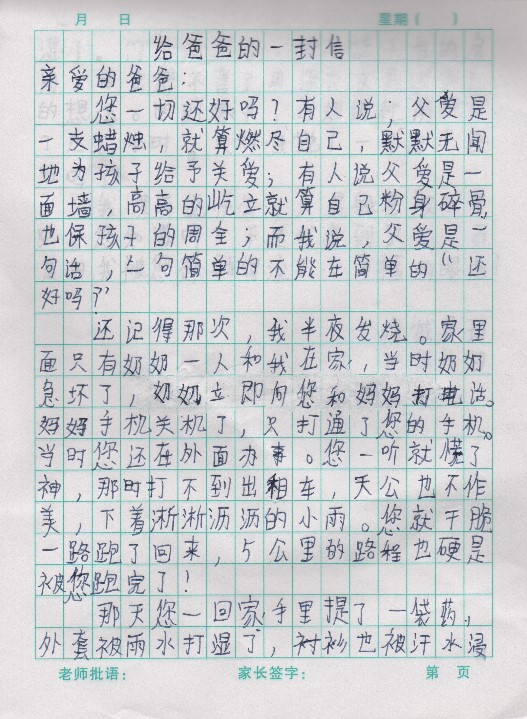 月 日 星期( )
给爸爸的一封信
亲爱的爸爸:
您一切还好吗?有人说;父爱是
一支蜡烛,就算燃尽自己,默默无闻
地为孩子给予关爱;有人说父爱是一
面墙,高高的屹立就算自己粉身碎骨,
也保孩子的周全;而我说,父爱是一
句话,一句简单的不能在简单的“还
好吗?”
还记得那次,我半夜发烧。家里
面只有奶奶一人和我在家,当时奶奶
急坏了,奶奶立即向您和妈妈打电话。
妈妈手机关机了,只打通了您的手机。
当时您还在外面办事。您一听就慌了
神,那时打不到出租车,天公也不作
美,下着淅淅沥沥的小雨。您就干脆
一路跑了回来,5公里的路程也硬是
被您跑完了!
那天您一回家手里提了一袋药,
外套被雨水打湿了,衬衫也被汗水浸
老师批语: 家长签字: 第 页